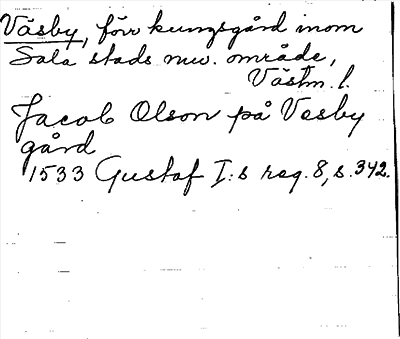 Väsby, förr kungsgård inom
Sala stads nuv. område,
Västm. l.
Jacob Olson på Vesby
gård
1533 Gustaf I:s reg. 8, s. 342.